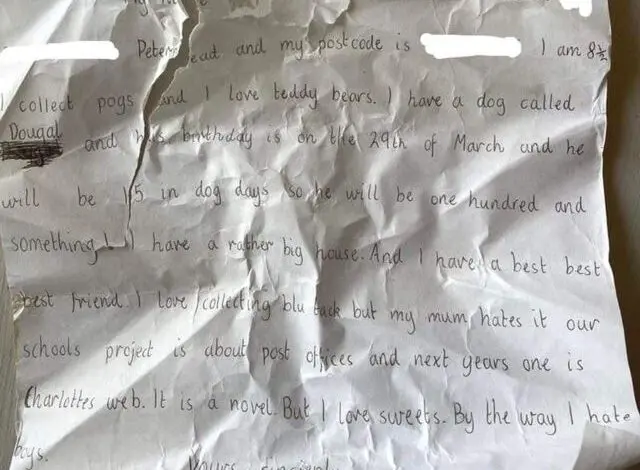 Peterhead and my postcode is I am 8½
I collect pogs and I love teddy bears. I have a dog called
Dougal and his birthday is on the 29th of March and he
will be 15 in dog days so he will be one hundred and
something! I have a rather big house. And I have a best best
best friend I love collecting blu tack but my mum hates it our
schools project is about post offices and next years one is
Charlottes web. It is a novel. But I love sweets. By the way I hate
boys.
Yours